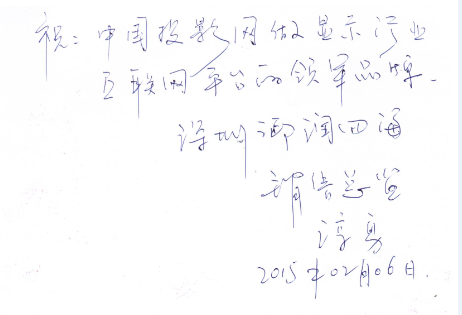 祝:中国投影网做显示行业
互联网平台的领军品牌.
深圳御润四海
销售总监
2015年02月06日.